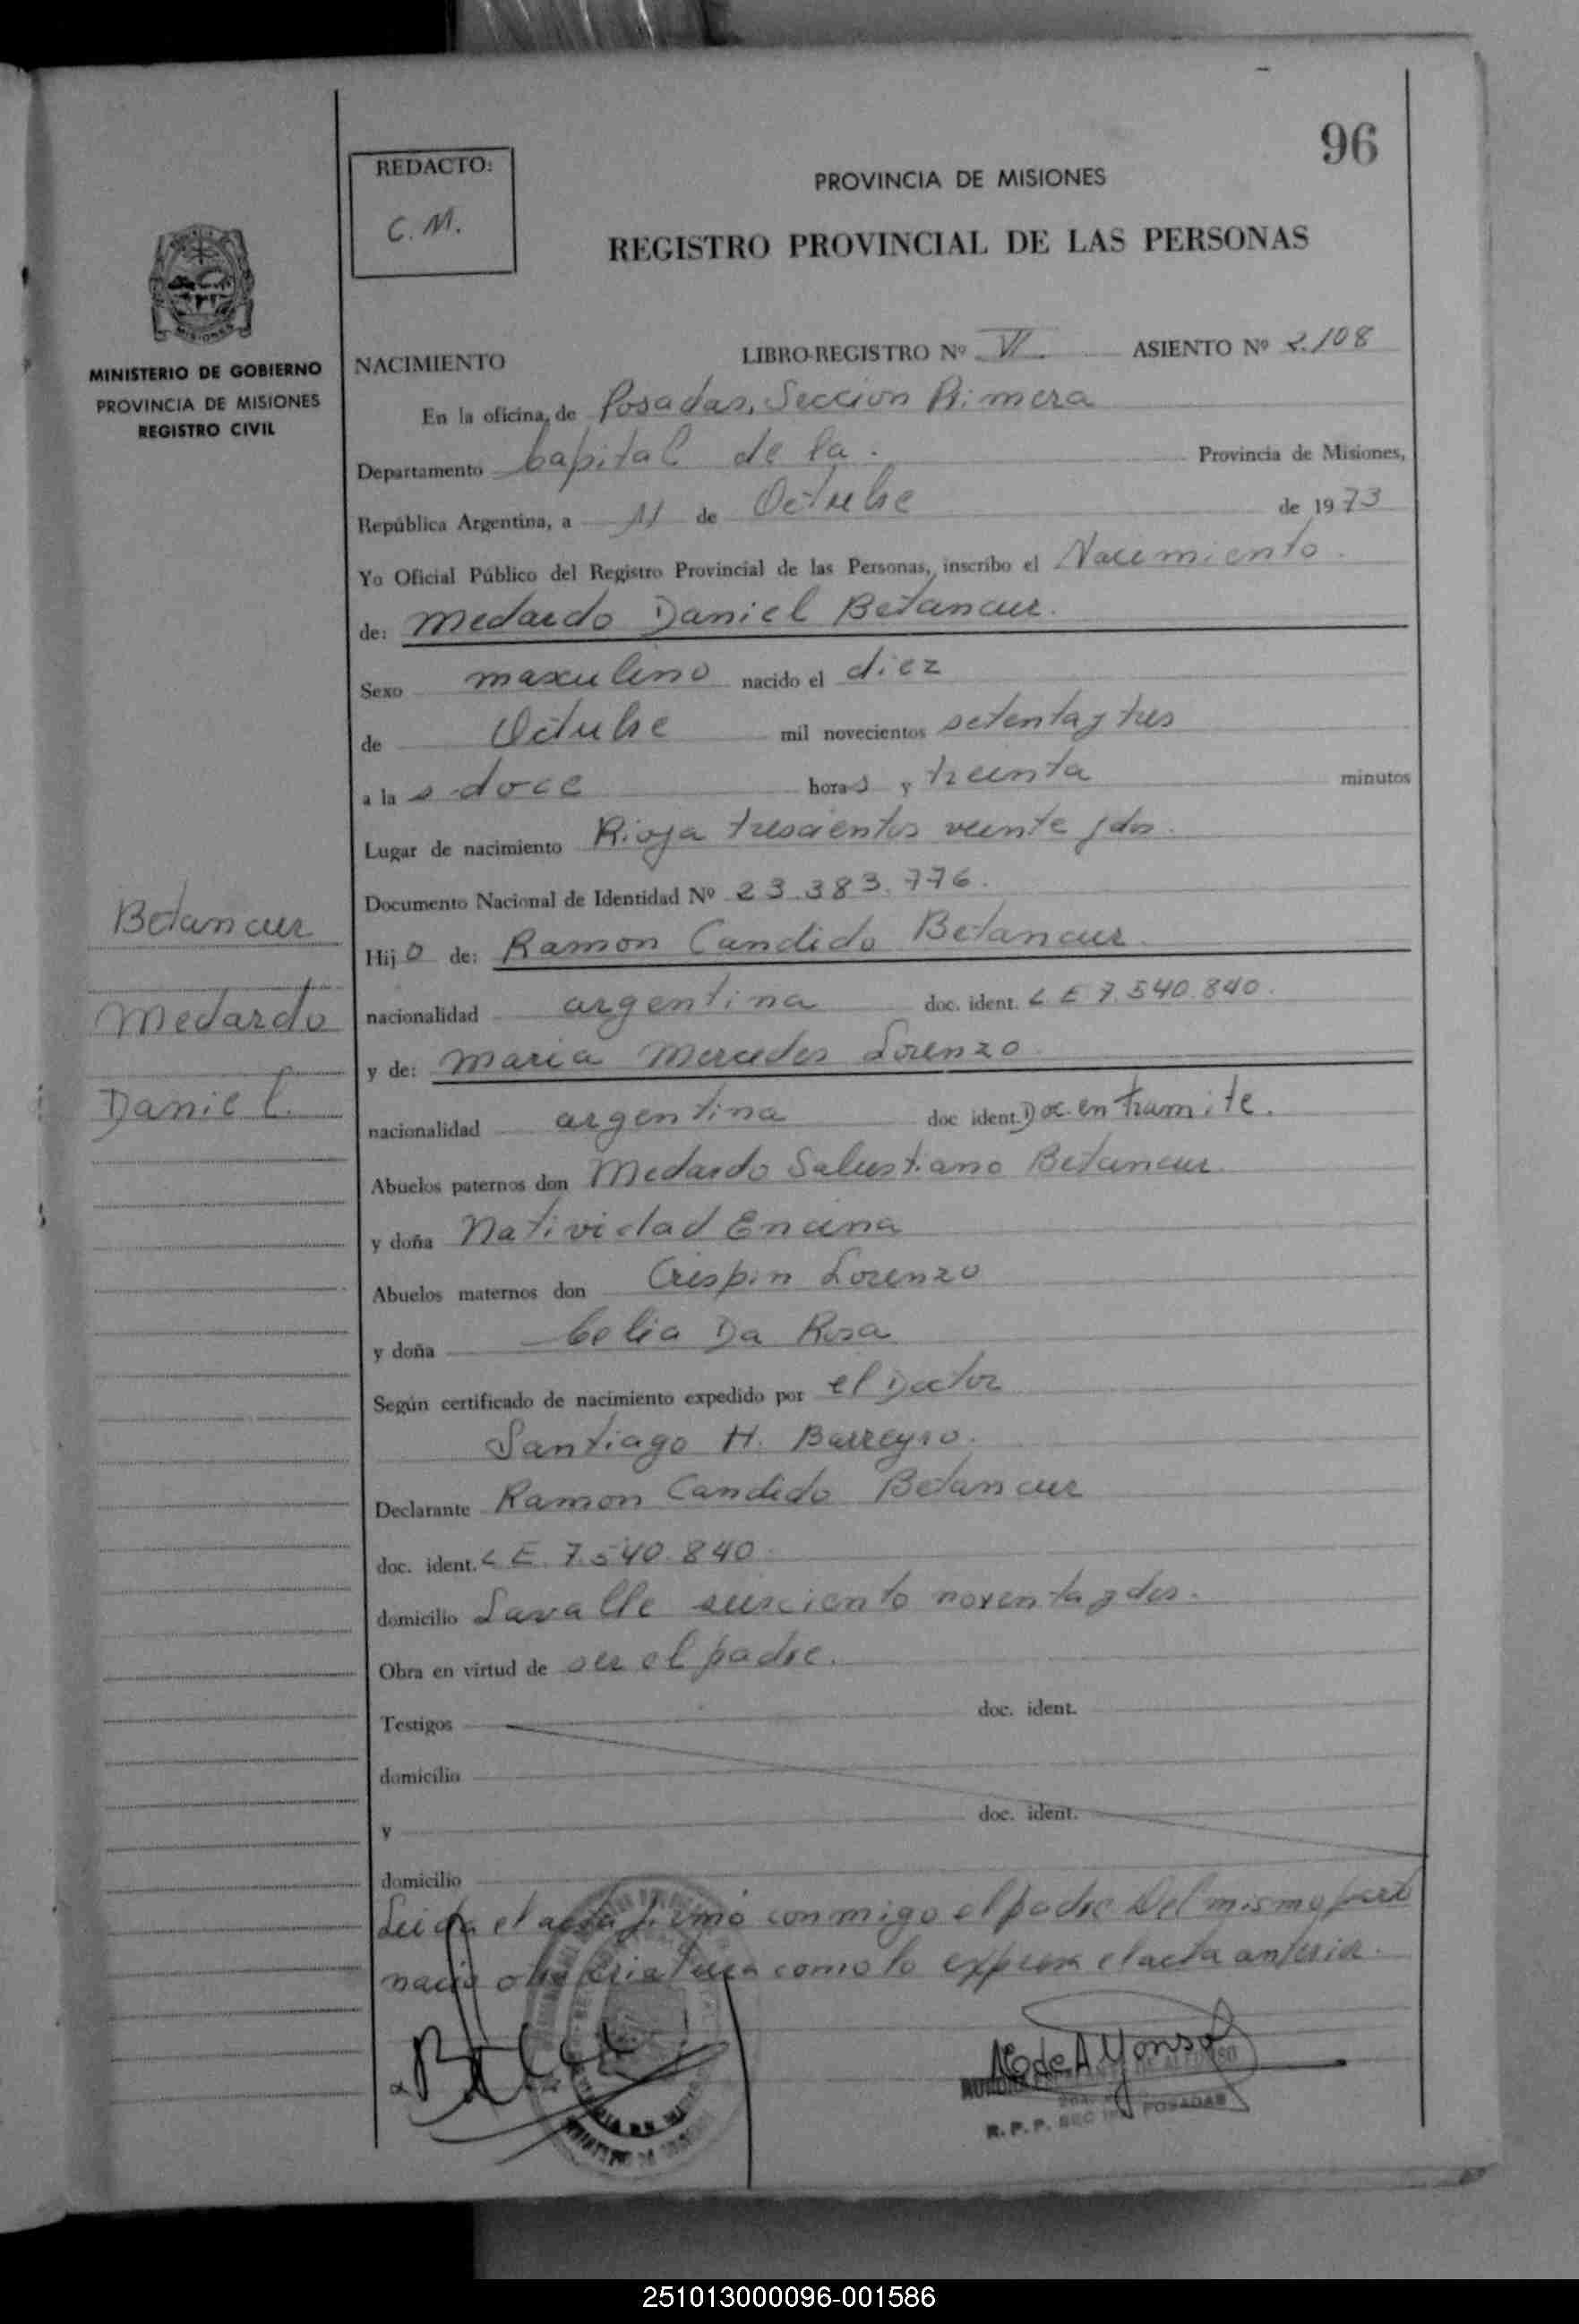 96
REDACTO:
C. M.
PROVINCIA DE MISIONES
REGISTRO PROVINCIAL DE LAS PERSONAS
MISIONES
MINISTERIO DE GOBIERNO
PROVINCIA DE MISIONES
REGISTRO CIVIL
NACIMIENTO LIBRO-REGISTRO Nº VI. ASIENTO Nº 2.108
En la oficina, de Posadas, Seccion Primera
Departamento Capital de la. Provincia de Misiones,
República Argentina, a 11 de Octubre de 1973
Yo Oficial Público del Registro Provincial de las Personas, inscribo el Nacimiento.
de: Medardo Daniel Betancur.
Sexo masculino nacido el diez
de Octubre mil novecientos setenta y tres
a la s doce hora s y treinta minutos
Lugar de nacimiento Rioja trescientos veinte y dos.
Documento Nacional de Identidad Nº 23.383.776.
Betancur
Hij o de: Ramon Candido Betancur.
Medardo
nacionalidad argentina doc. ident. L E 7.540.840.
y de: Maria Mercedes Lorenzo
Daniel.
nacionalidad argentina doc ident. Doc. en tramite.
Abuelos paternos don Medardo Salustiano Betancur
y doña Natividad Encina
Abuelos maternos don Crispin Lorenzo
y doña Celia Da Rosa
Según certificado de nacimiento expedido por el Doctor
Santiago H. Barreyro.
Declarante Ramon Candido Betancur
doc. ident. L E. 7.540.840.
domicilio Lavalle seisciento noventa y dos.
Obra en virtud de ser el padre.
Testigos doc. ident.
domicilio
y doc. ident.
domicilio
Leida el acta firmó conmigo el padre Del mismo parto
nacio otra criatura como lo expresa el acta anterior.
de Alfonso
DE ALFONSO
R. P. P. SEC 1ra POSADAS
251013000096-001586